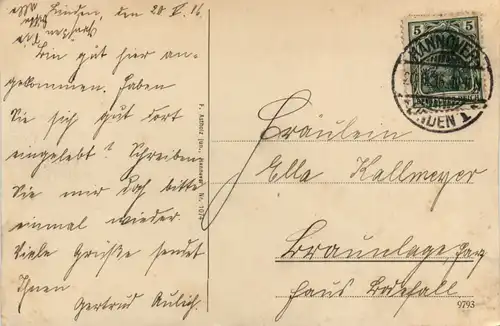 Linden, den 28 V. 16.
Bin gut hier an-
gekommen. Haben
Sie sich gut dort
eingelebt? Schreiben
Sie mir doch bitte
einmal wieder.
Viele Grüße sendet
Ihnen
Gertrud Aulich.
F. Astholz jun., Hannover. Nr. 107
5 5
HANNOVER
LINDEN 1
Fräulein
Ella Kallmeyer
Braunlage Harz
Haus Bodefall
9793